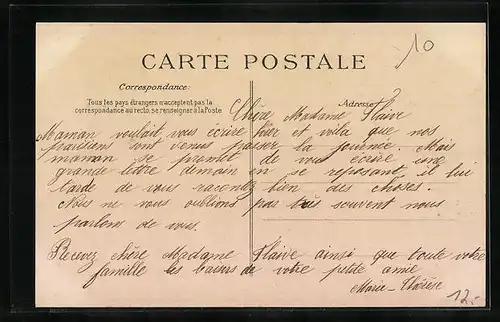 10
CARTE POSTALE
Correspondance:
Tous les pays étrangers n'acceptent pas la
correspondance au recto, se renseigner à la Poste
Adresse
Chère Madame Flaive
Maman voulait vous écrire hier et voila que nos
parisiens sont venus passer la journée. Mais
maman se promet de vous écrire une
grande lettre demain en se reposant, il lui
tarde de vous raconter bien des choses.
Nous ne vous oublions pas très souvent nous
parlons de vous.
Recevez chère Madame Flaive ainsi que toute votre
famille les baisers de votre petite amie
Marie-Thérèse
12.-